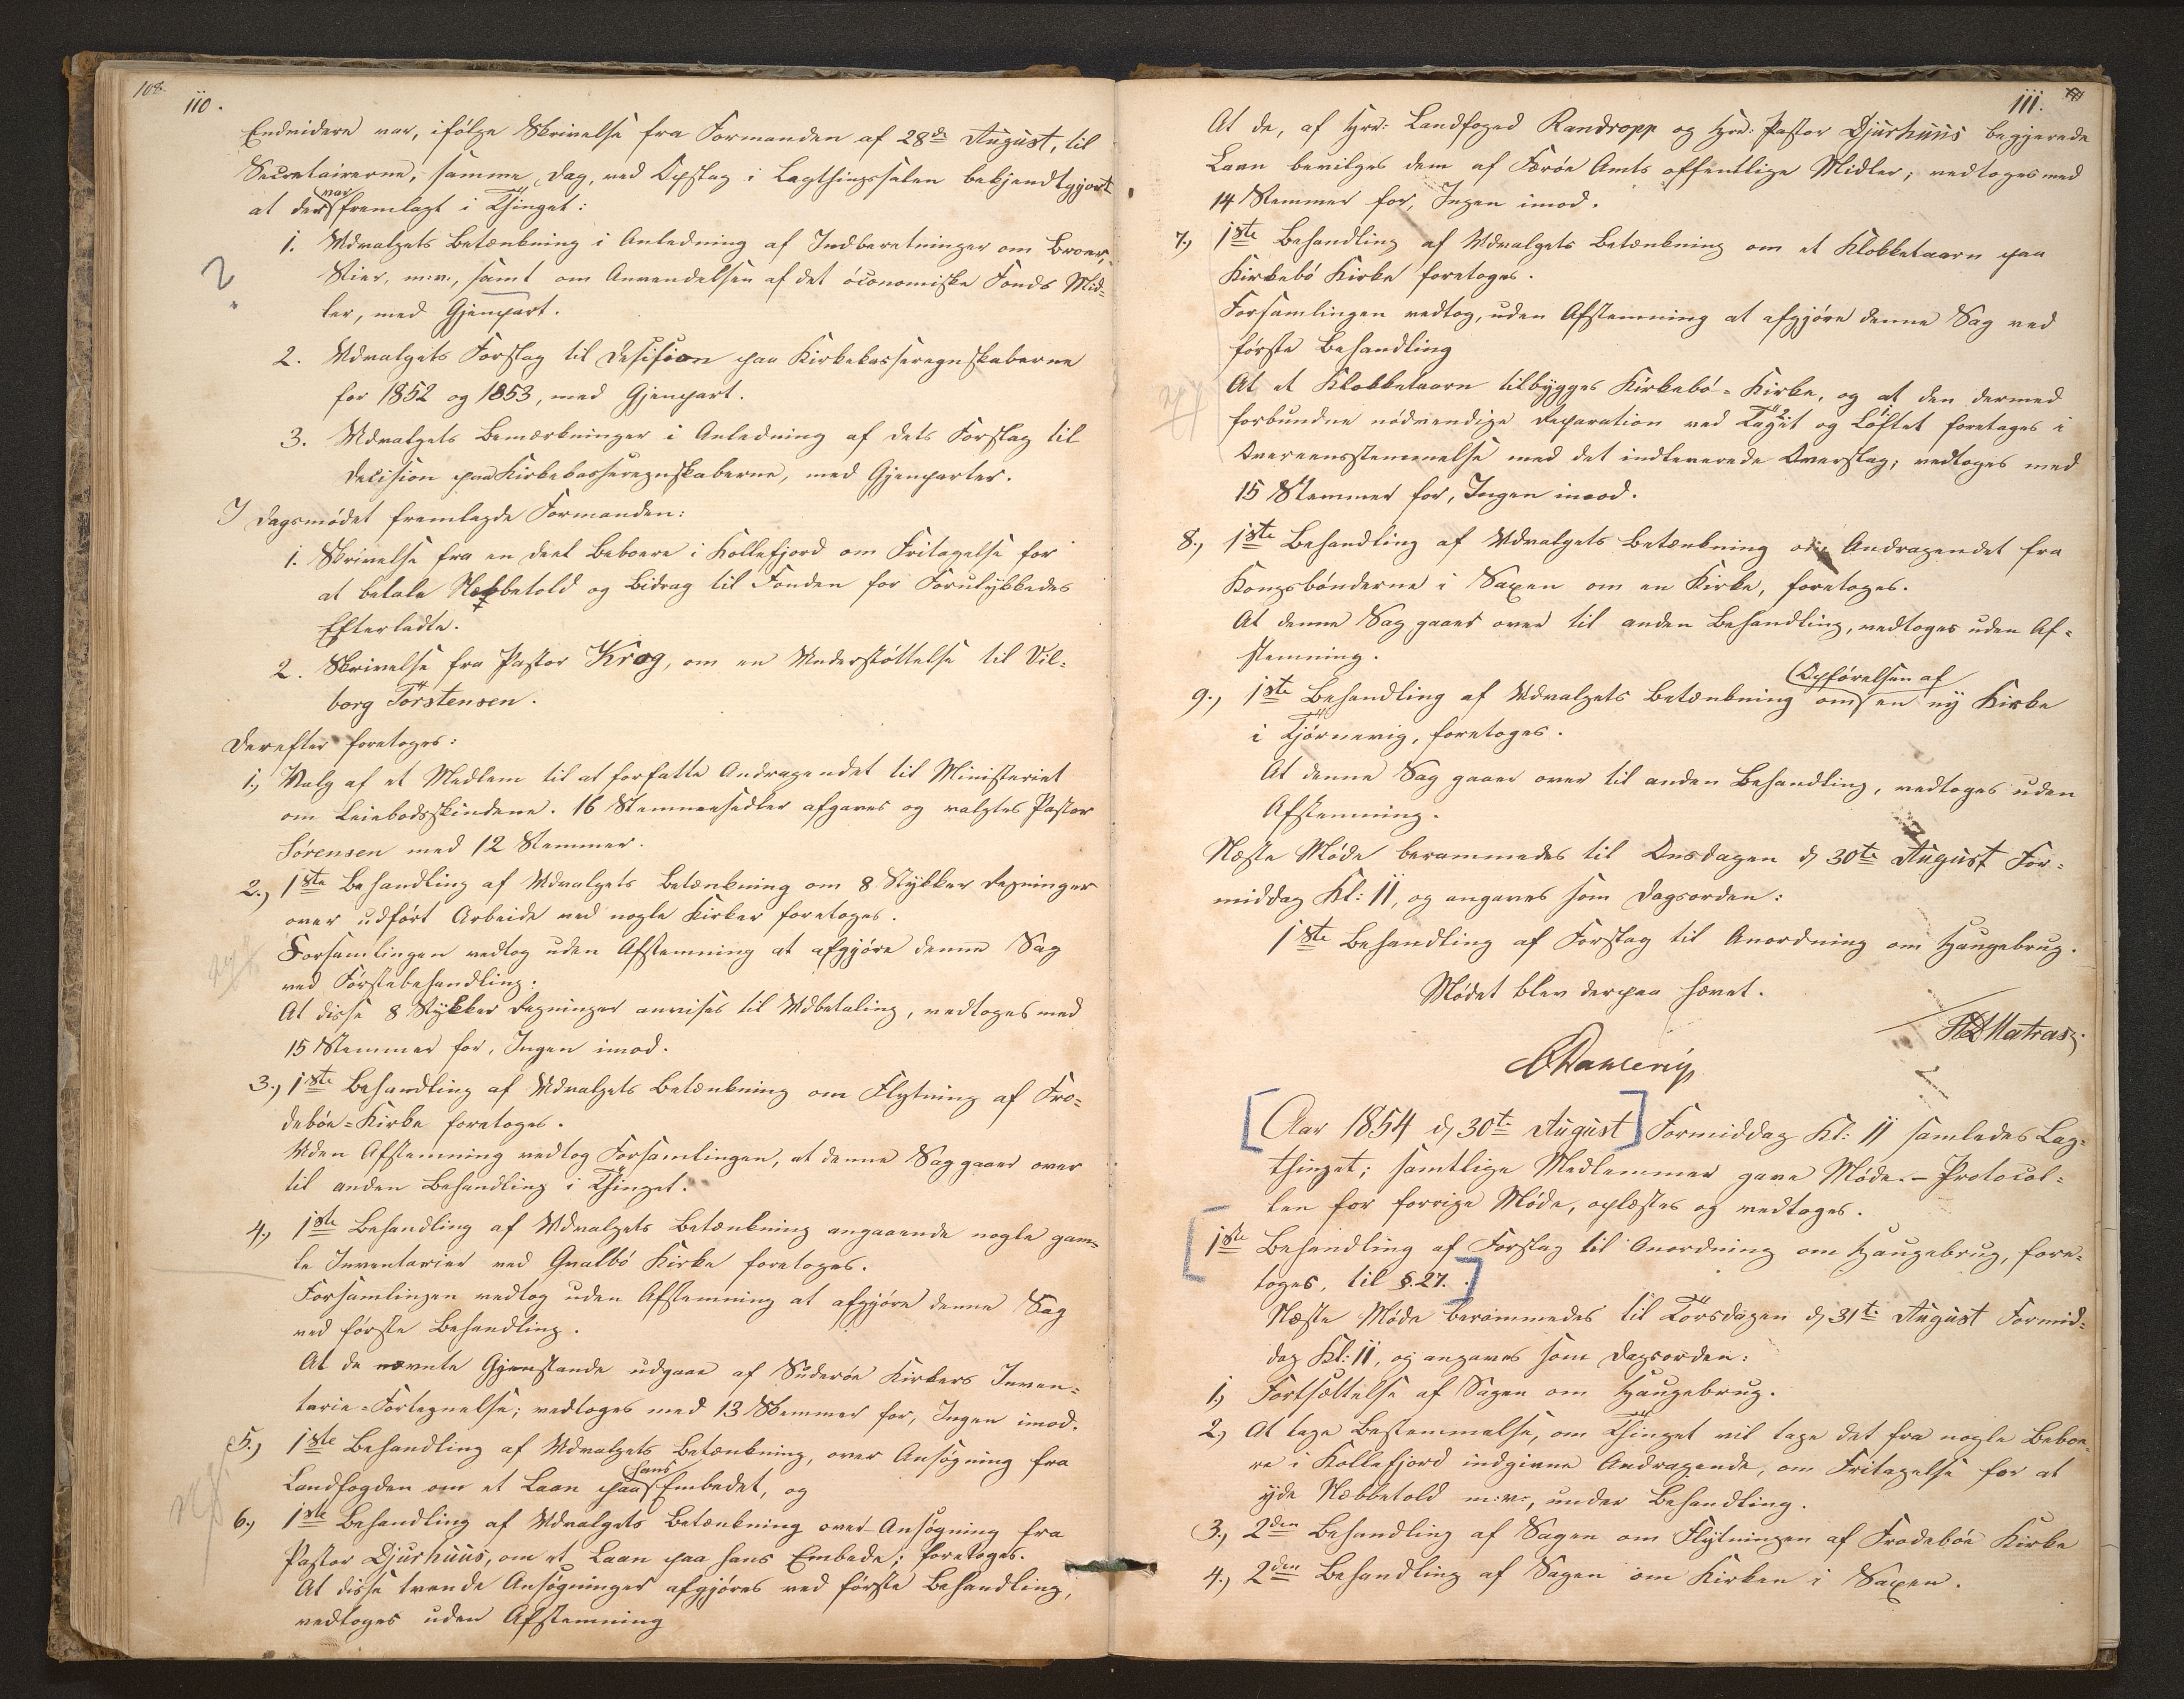 108.
110.
Endvidere var, ifölge Skrivelse fra Formanden af 28de August, til
Secretairerne, samme Dag, ved Opslag i Lagthingssalen bekjendtgjort
at der var fremlagt i Thinget:
1. Udvalgets Betænkning i Anledning af Indberetninger om Broer,
Stier, m:v., samt om Anvendelsen af det öconomiske Fonds Mid=
ler, med Gjenpart.
?
2. Udvalgets Forslag til Desision paa Kirkekasseregnskaberne
for 1852 og 1853, med Gjenpart.
3. Udvalgets Bemærkninger i Anledning af dets Forslag til
Decision paa Kirkekasseregnskaberne, med Gjenparter.
I Dagsmödet fremlagde Formanden:
1. Skrivelse fra en Deel Beboere i Kollefjord om Fritagelse for
at betale Næbbetold og Bidrag til Fonden for Forulykkedes
Efterladte.
2. Skrivelse fra Pastor Krog, om en Understöttelse til Vil=
borg Torstensen.
Derefter foretoges:
1., Valg af et Medlem til at forfatte Andragendet til Ministeriet
om Leiebodsskindene. 16 Stemmesedler afgaves og valgtes Pastor
Sörensen med 12 Stemmer.
2., 1ste Behandling af Udvalgets Betænkning om 8 Stykker Regninger
over udfört Arbeide ved nogle Kirker foretoges.
Forsamlingen vedtog uden Afstemning at afgjöre denne Sag
ved Förstebehandling:
At disse 8 Stykker Regninger anvises til Udbetaling, vedtoges med
15 Stemmer for, Ingen imod.
3., 1ste Behandling af Udvalgets Betænkning om Flytning af Fro=
debøe=Kirke foretoges.
Uden Afstemning vedtog Forsamlingen, at denne Sag gaaer over
til anden Behandling i Thinget.
4., 1ste Behandling af Udvalgets Betænkning angaaende nogle gam=
le Inventarier ved Qvalbö Kirke foretoges.
Forsamlingen vedtog uden Afstemning at afgjöre denne Sag
ved förste Behandling.
At de nævnte Gjenstande udgaae af Suderöe Kirkers Inven=
tarie=Fortegnelse; vedtoges med 13 Stemmer for, Ingen imod.
5., 1ste Behandling af Udvalgets Betænkning, over Ansögning fra
Landfogden om et Laan paa hans Embedet, og
6., 1ste Behandling af Udvalgets Betænkning over Ansögning fra
Pastor Djurhuus, om et Laan paa hans Embede; foretoges.
At disse tvende Ansögninger afgjöres ved förste Behandling,
vedtoges uden Afstemning
111.
At de, af Hrr: Landfoged Randropp og Hrr: Pastor Djurhuus begjerede
Laan bevilges dem af Færöe Amts offentlige Midler; vedtoges med
14 Stemmer for, Ingen imod.
7., 1ste Behandling af Udvalgets Betænkning om et Klokketaarn paa
Kirkebö Kirke foretoges.
Forsamlingen vedtog, uden Afstemning at afgjöre denne Sag ved
förste Behandling
At et Klokketaarn tilbygges Kirkebö=Kirke, og at den dermed
forbundne nödvendige Reparation ved Taget og Loftet foretages i
Overeensstemmelse med det indleverede Overslag; vedtoges med
15 Stemmer for, Ingen imod.
8., 1ste Behandling af Udvalgets Betænkning om Andragendet fra
Kongsbönderne i Saxen om en Kirke, foretoges.
At denne Sag gaaer over til anden Behandling, vedtoges uden Af=
stemning.
9., 1ste Behandling af Udvalgets Betænkning om Opförelsen af en ny Kirke
i Tjörnevig, foretoges.
At denne Sag gaaer over til anden Behandling, vedtoges uden
Afstemning.
Næste Möde berammedes til Onsdagen d, 30te August For=
middag Kl: 11, og angaves som Dagsorden:
1ste Behandling af Forslag til Anordning om Haugebrug.
Mödet blev derpaa hævet.
Matras.
Dahlerup
Aar 1854 d, 30te August Formiddag Kl: 11 samledes Lag=
thinget; samtlige Medlemmer gave Möde. – Protocol=
len for forrige Möde, oplæstes og vedtoges.
1ste Behandling af Forslag til Anordning om Haugebrug, fore=
toges, til §.27.
Næste Möde berammedes til Torsdagen d, 31te August Formid=
dag Kl: 11, og angaves som Dagsorden:
1., Fortsættelse af Sagen om Haugebrug.
2., At tage Bestemmelse, om Thinget vil tage det fra nogle Beboe=
re i Kollefjord indgivne Andragende, om Fritagelse for at
yde Næbbetold m:v:, under Behandling.
3., 2den Behandling af Sagen om Flytningen af Frodebøe Kirke
4., 2den Behandling af Sagen om Kirken i Saxen.